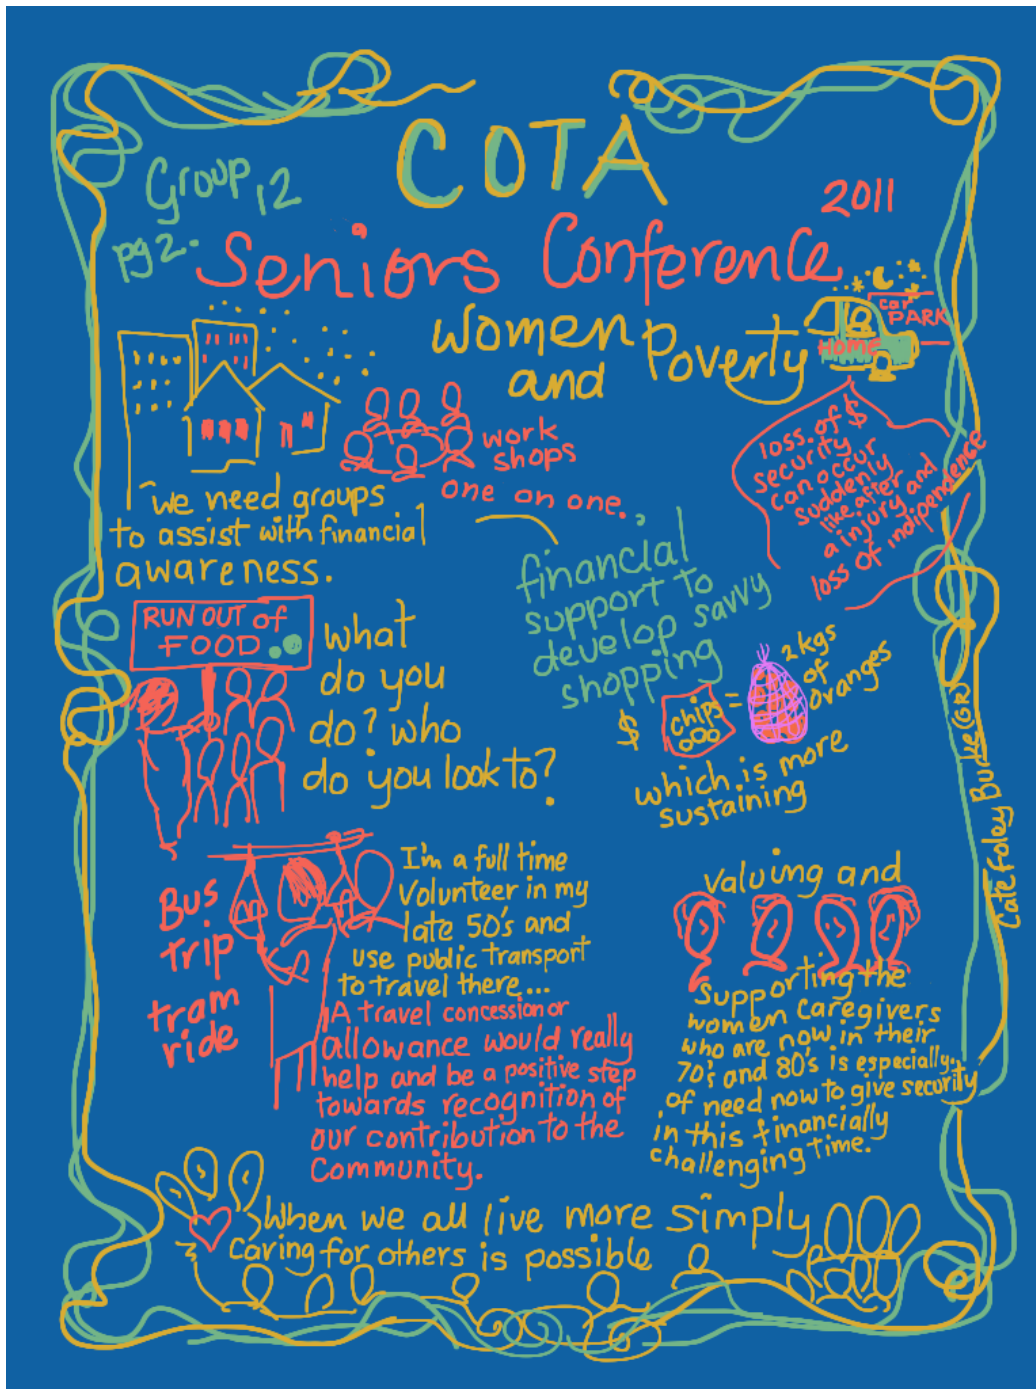 COTA
Group 12
pg 2.
2011
Seniors Conference
Women
and
Poverty
car
PARK
HOME
work
shops
one on one.
we need groups
to assist with financial
awareness.
loss of $
security
can occur
suddenly
like after
a injury and
loss of indipendence
financial
support to
develop savvy
shopping
$
chips
=
2 kgs
of
oranges
which is more
sustaining
RUN OUT of
FOOD
what
do you
do? who
do you look to?
Bus
trip
tram
ride
I'm a full time
Volunteer in my
late 50's and
use public transport
to travel there...
A travel concession or
allowance would really
help and be a positive step
towards recognition of
our contribution to the
Community.
Valuing and
Supporting the
women Caregivers
who are now in their
70's and 80's is especially
of need now to give security
in this financially
challenging time.
When we all live more simply
Caring for others is possible
Cate Foley Burke (GR)